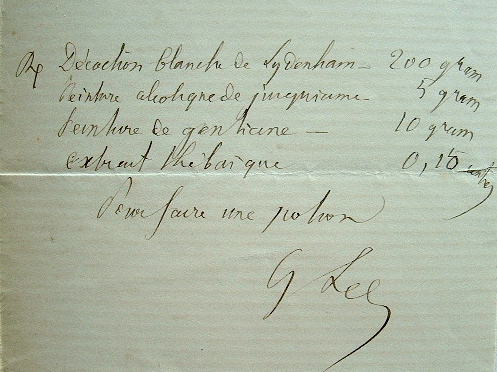 Rp Décoction blanche de Sydenham — 200 gram
Teinture alcoolique de jusquiame — 5 gram
Teinture de gentiane — 10 gram
extrait thébaïque 0,15 centig
Pour faire une potion
G Lee